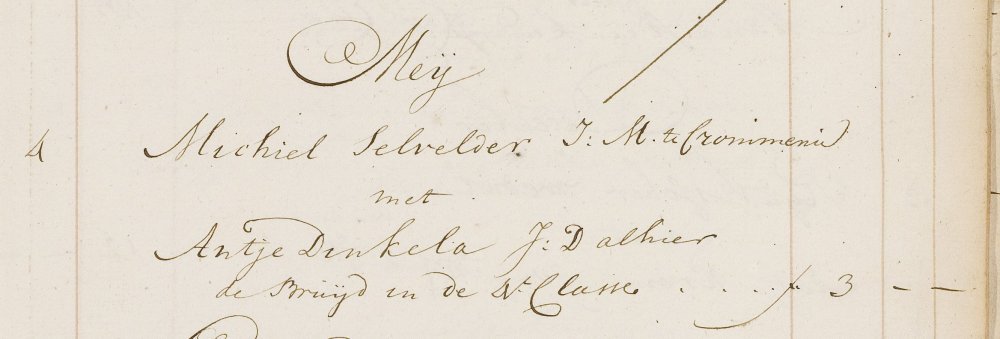 Meÿ
4 Michiel Selvelder J: M. te Crommenie
met
Antje Dinkela J: D alhier
de Bruÿd in de 4t. Classe . . . . f 3 – –